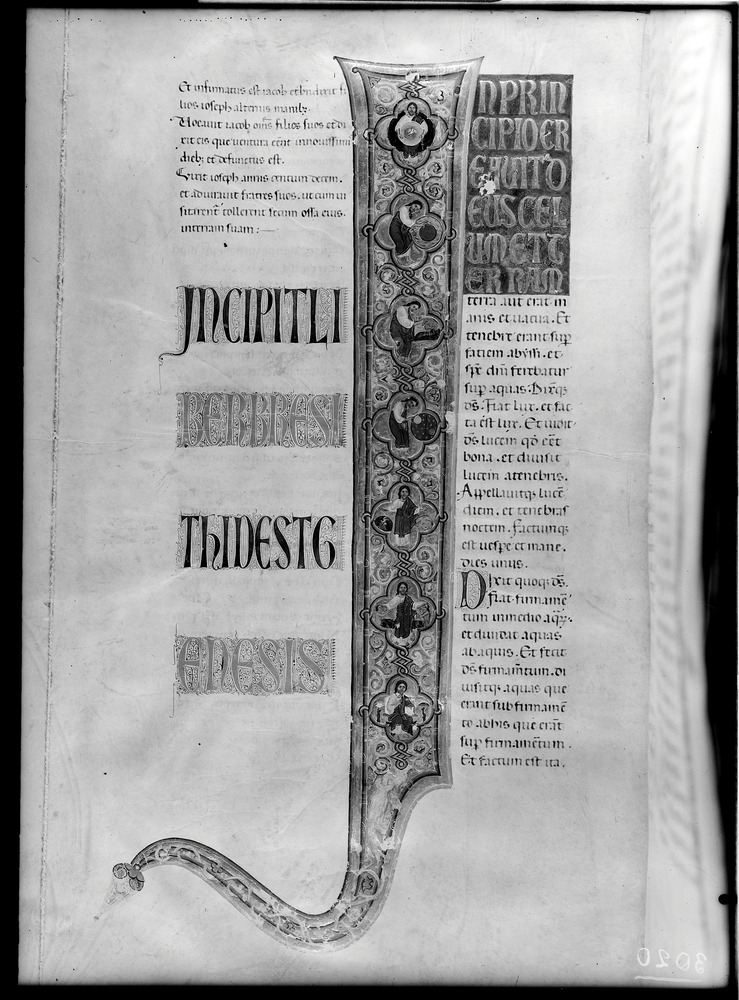 Et infirmatus est iacob et bndixit fi
lios ioseph alterius manib;
Vocauit iacob oms filios suos et di
xit eis que uentura eent in nouissimis
dieb; et defunctus est.
Vixit ioseph annis centum decem.
et adiurauit fratres suos. ut cum ui
sitarent tollerent secum ossa eius.
in terram suam :—
INCIPIT LI
BER BRESI
TH ID EST G
ENESIS
N PRIN
CIPIO CR
EAUIT D
EUS CEL
UM ET T
ERRAM
terra aut erat in
anis et uacua. Et
tenebre erant sup
faciem abyssi. et
sps dni ferebatur
sup aquas. Dixitq;
ds. Fiat lux. et fac
ta est lux. Et uidit
ds lucem qd eet
bona. et diuisit
lucem a tenebris.
Appellauitq; lucē
diem. et tenebras
noctem. Factumq;
est uespe et mane.
dies unus.
Dixit quoq; ds.
fiat firmamē
tum in medio aqr.
et diuidat aquas
ab aquis. Et fecit
ds firmamtum. di
uisitq; aquas que
erant sub firmamē
to ab his que erāt
sup firmamētum.
Et factum est ita.
3020